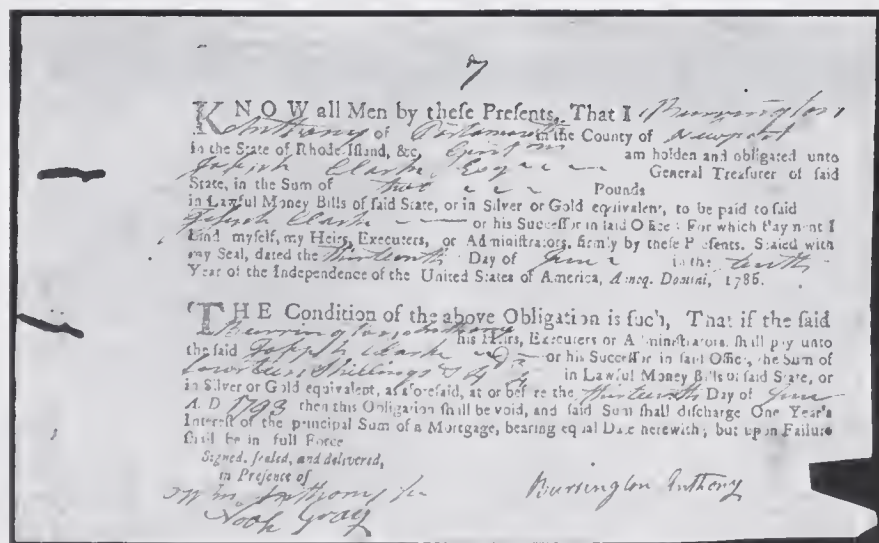 7
KNOW all Men by theſe Preſents, That I Burrington
Anthony of Portsmouth in the County of Newport
in the State of Rhode-Iſland, &c. am holden and obligated unto
Joseph Clarke Esqr General Treaſurer of ſaid
State, in the Sum of two Pounds
in Lawful Money Bills of ſaid State, or in Silver or Gold equivalent, to be paid to ſaid
Joseph Clarke or his Succeſſor in ſaid Office: For which Payment I
bind myſelf, my Heirs, Executers, or Adminiſtrators, firmly by theſe Preſents. Sealed with
my Seal, dated the thirteenth Day of June in the tenth
Year of the Independence of the United States of America, Annoq. Domini, 1786.
THE Condition of the above Obligation is ſuch, That if the ſaid
Burrington Anthony his Heirs, Executers or Adminiſtrators, ſhall pay unto
the ſaid Joseph Clarke or his Succeſſor in ſaid Office, the Sum of
Shillings & in Lawful Money Bills of ſaid State, or
in Silver or Gold equivalent, as aforeſaid, at or before the thirteenth Day of June
A. D 1793 then this Obligation ſhall be void, and ſaid Sum ſhall diſcharge One Year's
Intereſt of the principal Sum of a Mortgage, bearing equal Date herewith; but upon Failure
ſhall be in full Force
Signed, ſealed, and delivered,
in Preſence of
Wm. Anthony Jur
Burrington Anthony
Noah Gray